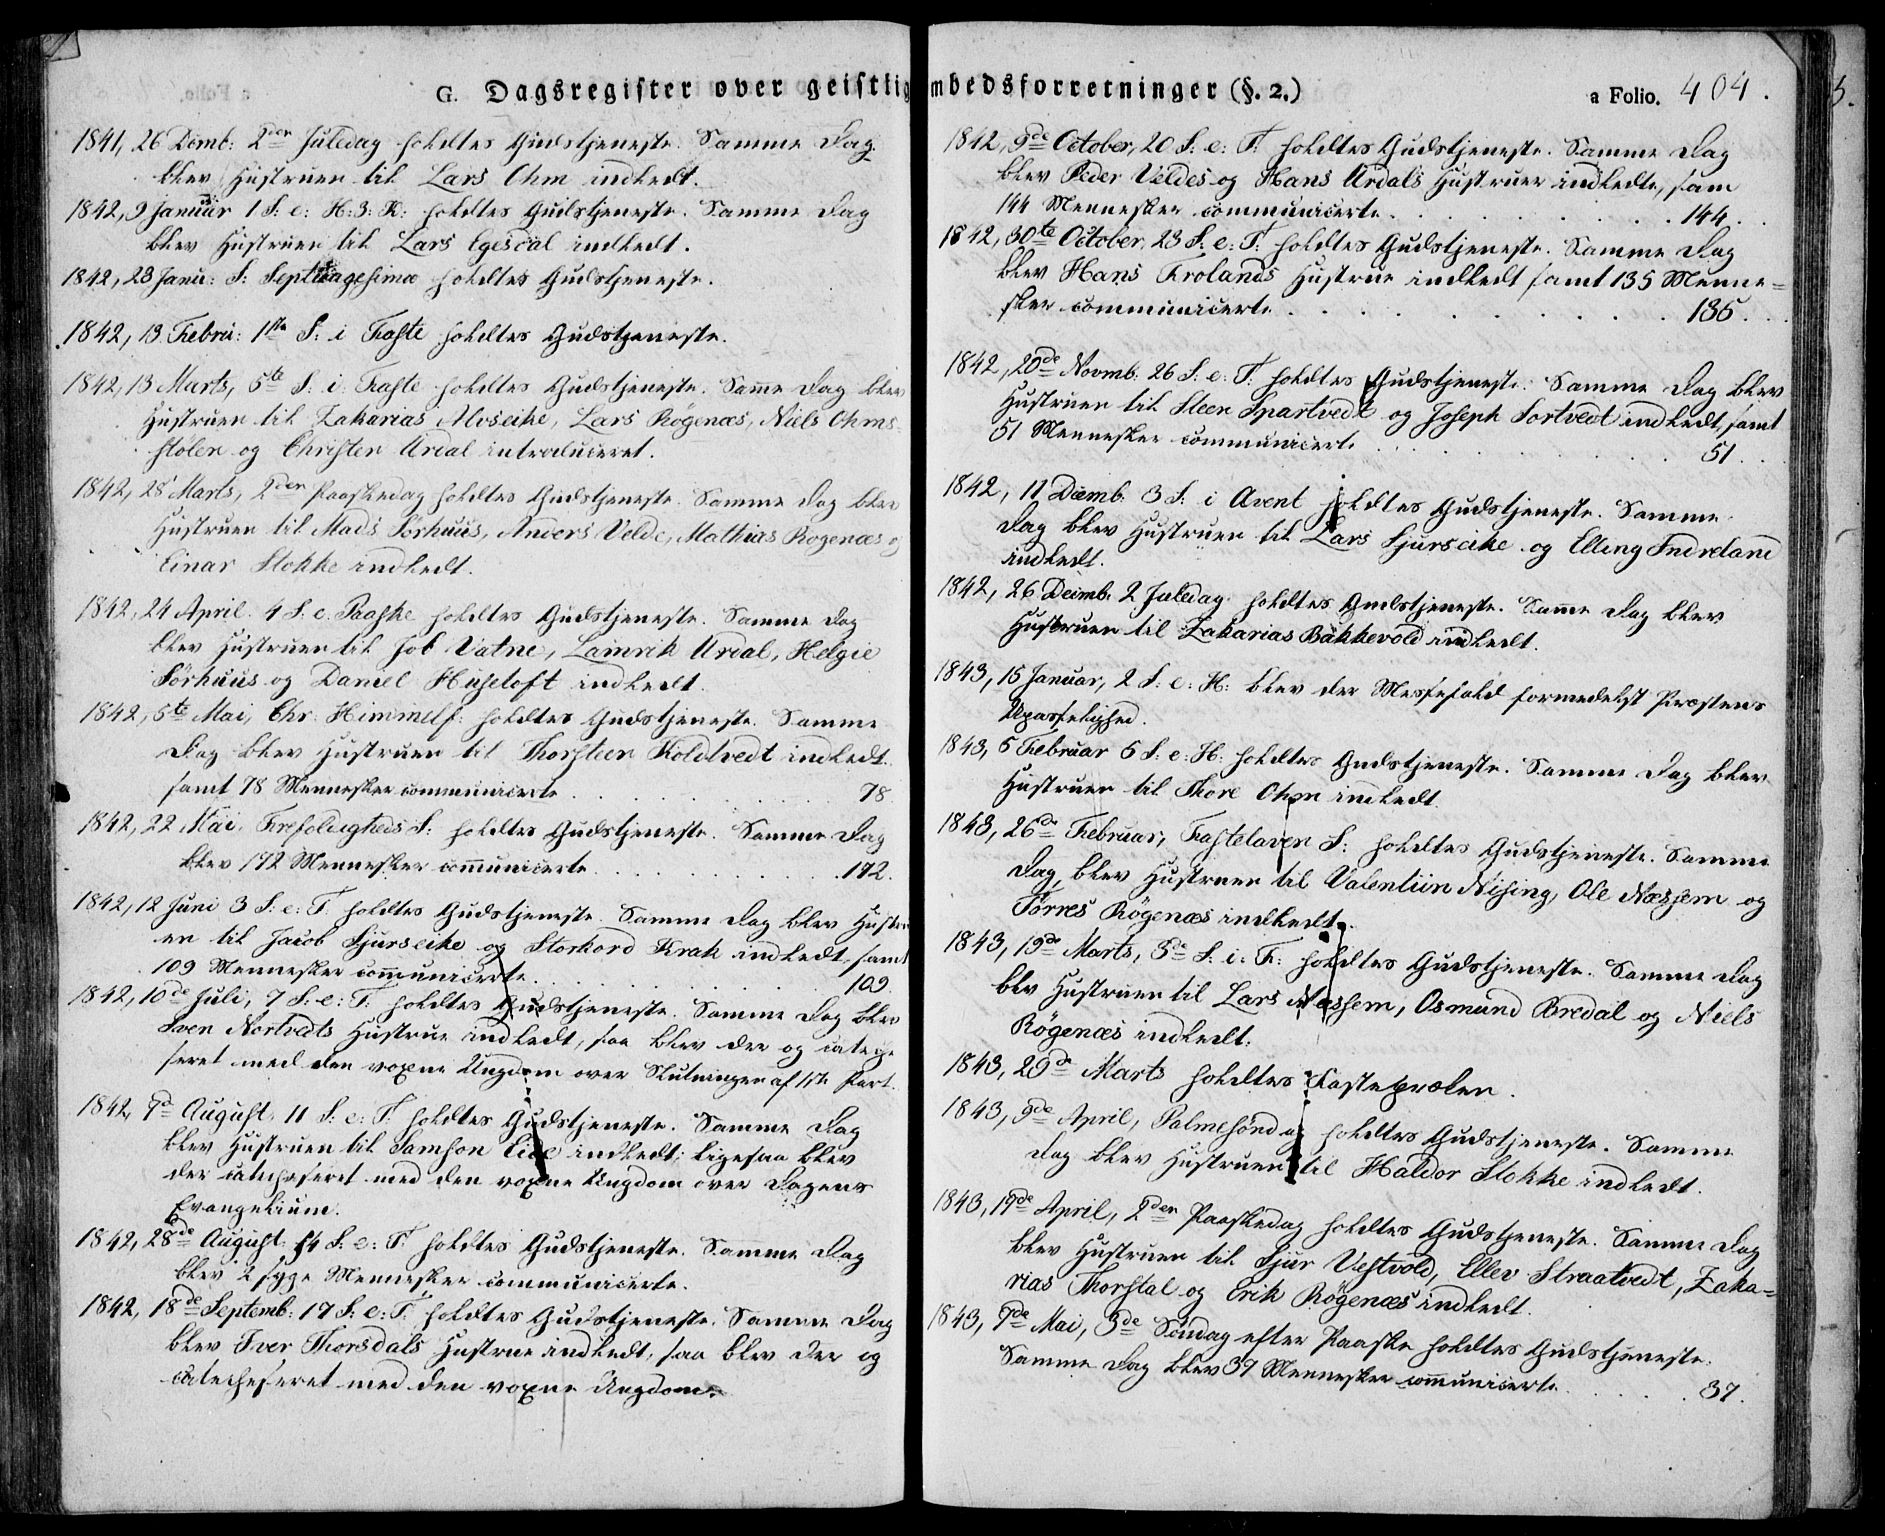 G. Dagsregister over geistlig
1841, 26 Decmb: 2den Juledag holdtes Gudstjeneste. Samme Dag
blev Hustruen til Lars Ohm indledt.
1842, 9 Januar 1 S: e: H: 3: K: holdtes Gudstjeneste. Samme Dag
blev Hustruen til Lars Egesdal indledt.
1842, 23 Janu: S: Septuagesima holdtes Gudstjeneste.
1842, 13 Febru: 1ste S: i Faste holdtes Gudstjeneste.
1842, 13 Marts, 5te S: i Faste holdtes Gudstjeneste. Samme Dag blev
Hustruen til Zakarias Alvseike, Lars Røgenæs, Niels Ohms-
stølen og Christen Urdal introduceret.
1842, 28 Marts, 2den Paaskedag holdtes Gudstjeneste. Samme Dag blev
Hustruen til Mads Sørhuus, Anders Velde, Mathias Rogenæs og
Einar Stokke indledt.
1842, 24 April. 4 S. e. Paaske holdtes Gudstjeneste. Samme Dag
blev Hustruen til Job Vatne, Lamrik Urdal, Helgie
Sørhuus og Daniel Husetoft indledt.
1842, 5te Mai, Chr: Himmelf: holdtes Gudstjeneste. Samme
Dag blev Hustruen til Thorsteen Koldtvedt indledt
samt 78 Mennesker communicerte . . . . 78.
1842, 22 Mai, Trefoldigheds S: holdtes Gudstjeneste. Samme Dag
blev 172 Mennesker communicerte . . . . 172.
1842, 12 Juni 3 S: e: T: holdtes Gudstjeneste. Samme Dag blev Hustru
en til Jacob Sjurseike og Storkord Krak indledt, samt
109 Mennesker communicerte . . . . 109.
1842, 10de Juli, 7 S: e: T: holdtes Gudstjeneste. Samme Dag blev
Sven Nortvedts Hustrue indledt, saa blev der og cateche
seret med den voxne Ungdom over Slutningen af 1ste Part.
1842, 7de August, 11 S: e: T: holdtes Gudstjeneste. Samme Dag
blev Hustruen til Samson Eide indledt; ligesaa blev
der catecheseret med den voxne Ungdom over Dagens
Evangelium.
1842, 28de August 14 S: e: T: holdtes Gudstjeneste. Samme Dag
blev 2 syge Mennesker communicerte.
1842, 18de Septemb: 17 S: e: T: holdtes Gudstjeneste. Samme Dag
blev Iver Thorsdals Hustrue indledt, saa blev der og
catecheseret med den voxne Ungdom.
mbedsforretninger (§. 2.)
a Folio. 404.
1842, 9de October, 20 S: e: T: holdtes Gudstjeneste. Samme Dag
blev Peder Veldes og Hans Urdals Hustruer indledte, sam
144 Mennesker communicerte . . . . 144.
1842, 30te October, 23 S: e: T: holdtes Gudstjeneste. Samme Dag
blev Hans Frolands Hustrue indledt samt 135 Menne=
sker communicerte . . . . 135.
1842, 20de Novmb: 26 S: e: T: holdtes Gudstjeneste. Samme Dag blev
Hustruen til Steen Spartvedt og Joseph Sortvedt indledt, samt
51 Mennesker communicerte . . . . 51.
1842, 11 Decmb: 3 S: i Avent holdtes Gudstjeneste. Samme
Dag blev Hustruen til Lars Sjurseike og Elling Indreland
indledt.
1842, 26 Decmb: 2 Juledag holdtes Gudstjeneste. Samme Dag blev
Hustruen til Zakarias Bakkevold indledt.
1843, 15 Januar, 2 S: e: H: blev der Messefald formedelst Præstens
Upasselighed.
1843, 5 Februar 5 S: e: H: holdtes Gudstjeneste. Samme Dag blev
Hustruen til Thore Ohm indledt.
1843, 26de Februar, Fastelaven S: holdtes Gudstjeneste. Samme
Dag blev Hustruen til Valentiin Nising, Ole Næshem og
Tørres Røgenæs indledt.
1843, 19de Marts, 3de S: i: F: holdtes Gudstjeneste. Samme Dag
blev Hustruen til Lars Næshem, Osmund Bredal og Niels
Røgenæs indledt.
1843, 29de Marts holdtes Fastepræken.
1843, 9de April, Palmesøndag holdtes Gudstjeneste. Samme
Dag blev Hustruen til Haldor Stokke indledt.
1843, 17de April, 2den Paaskedag holdtes Gudstjeneste. Samme Dag
blev Hustruen til Sjur Vestvold, Ellev Straatvedt, Zaka=
rias Thorstal og Erik Røgenæs indledt.
1843, 7de Mai, 3de Søndag efter Paaske holdtes Gudstjeneste.
Samme Dag blev 37 Mennesker communicerte . . . . 37.